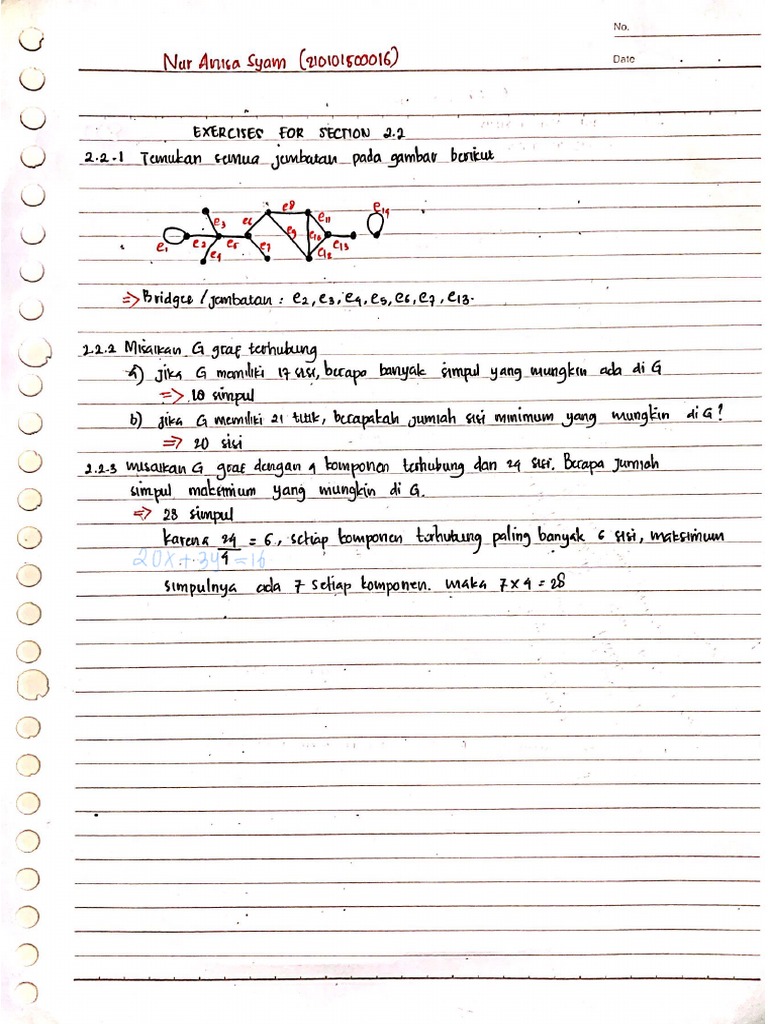 No.
Nur Anisa Syam (210101500016)
Date
EXERCISES FOR SECTION 2.2
2.2.1 Temukan semua jembatan pada gambar berikut
e1 e2 e3 e4 e5 e6 e7 e8 e9 e10 e11 e12 e13 e14
=> Bridges / jembatan : e2, e3, e4, e5, e6, e7, e13.
2.2.2 Misalkan G graf terhubung
a) jika G memiliki 17 sisi, berapa banyak simpul yang mungkin ada di G
=> 18 simpul
b) jika G memiliki 21 titik, berapakah jumlah sisi minimum yang mungkin di G?
=> 20 sisi
2.2.3 misalkan G graf dengan 4 komponen terhubung dan 24 sisi. Berapa jumlah
simpul maksimum yang mungkin di G.
=> 28 simpul
karena 24/4 = 6, setiap komponen terhubung paling banyak 6 sisi, maksimum
20x + 3y = 16
simpulnya ada 7 setiap komponen. maka 7 x 4 = 28